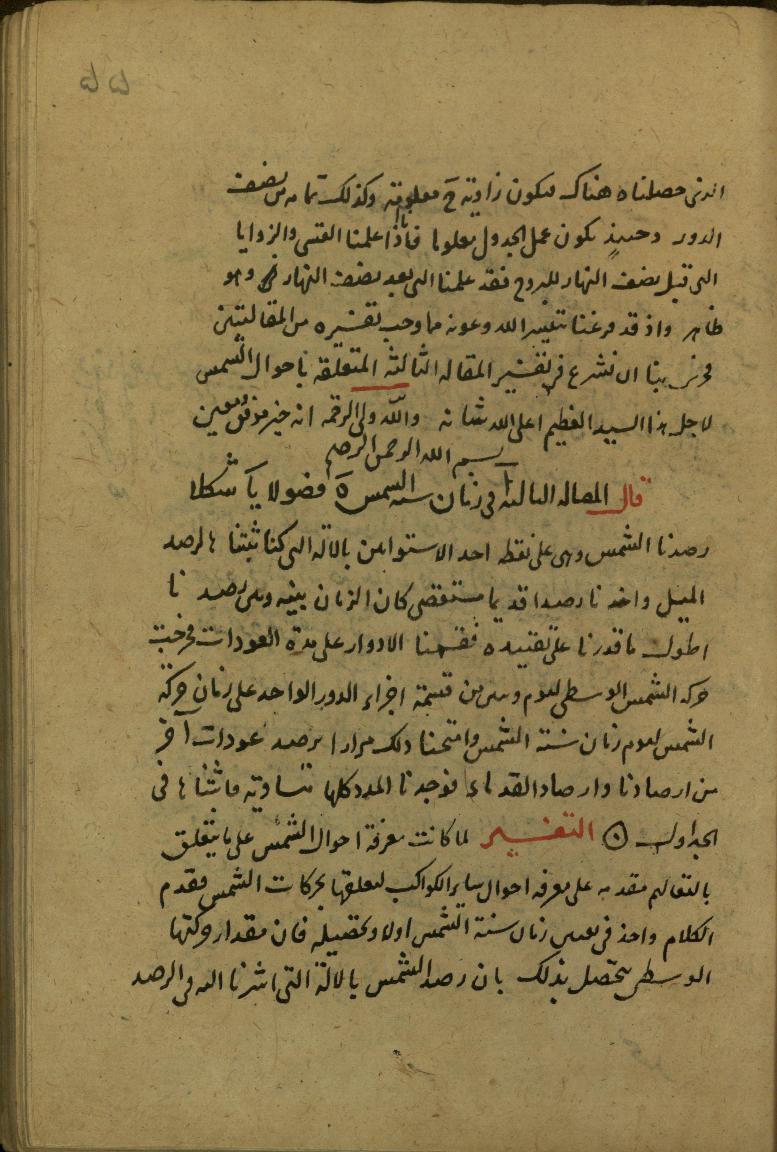 الذى حصلناه هناك فيكون زاوية ح معلومة وكذلك تمامه من نصف
الدور وحينئذ يكون عمل الجدول معلوما فاذا علمنا القسى والزوايا
التى قبل نصف النهار للبروج فقد علمنا التى بعد نصف النهار وهو
ظاهر واذ قد فرغنا بتيسير الله وعونه مما وجب تفسيره من المقالتين
فحرى بنا ان نشرع فى تفسير المقالة الثالثة المتعلقة باحوال الشمس
لاجل هذا السيد العظيم اعلى الله شانه والله ولى الرحمة انه خير موفق ومعين
بسم الله الرحمن الرحيم
قال المقالة الثالثة آ فى زمان سنة الشمس ه فصولا يا شكلا
رصدنا الشمس وهى على نقطة احد الاستوائين بالآلة التى كنا ثبتناها لرصد
الميل واخذنا رصدا قديما مستقصى كان الزمان بينه وبين رصدنا
اطول ما قدرنا على تقييده فقسمنا الادوار على مدة العودات فخرجت
حركة الشمس الوسطى ليوم وتبين من قسمة اجزاء الدور الواحد على زمان حركة
الشمس ليوم زمان سنة الشمس وامتحنا ذلك مرارا برصد عودات آخر
من ارصادنا وارصاد القدماء فوجدنا المدد كلها متساوية فاثبتناها فى
الجداول ۞ التفسير لما كانت معرفة احوال الشمس على ما يتعلق
بالتعاليم مقدمة على معرفة احوال ساير الكواكب لتعلقها بحركات الشمس فقدم
الكلام واخذ فى تعيين زمان سنة الشمس اولا وتحصيله فان مقدار حركتها
الوسطى يتحصل بذلك بان رصد الشمس بالآلة التى اشرنا اليه فى الرصد